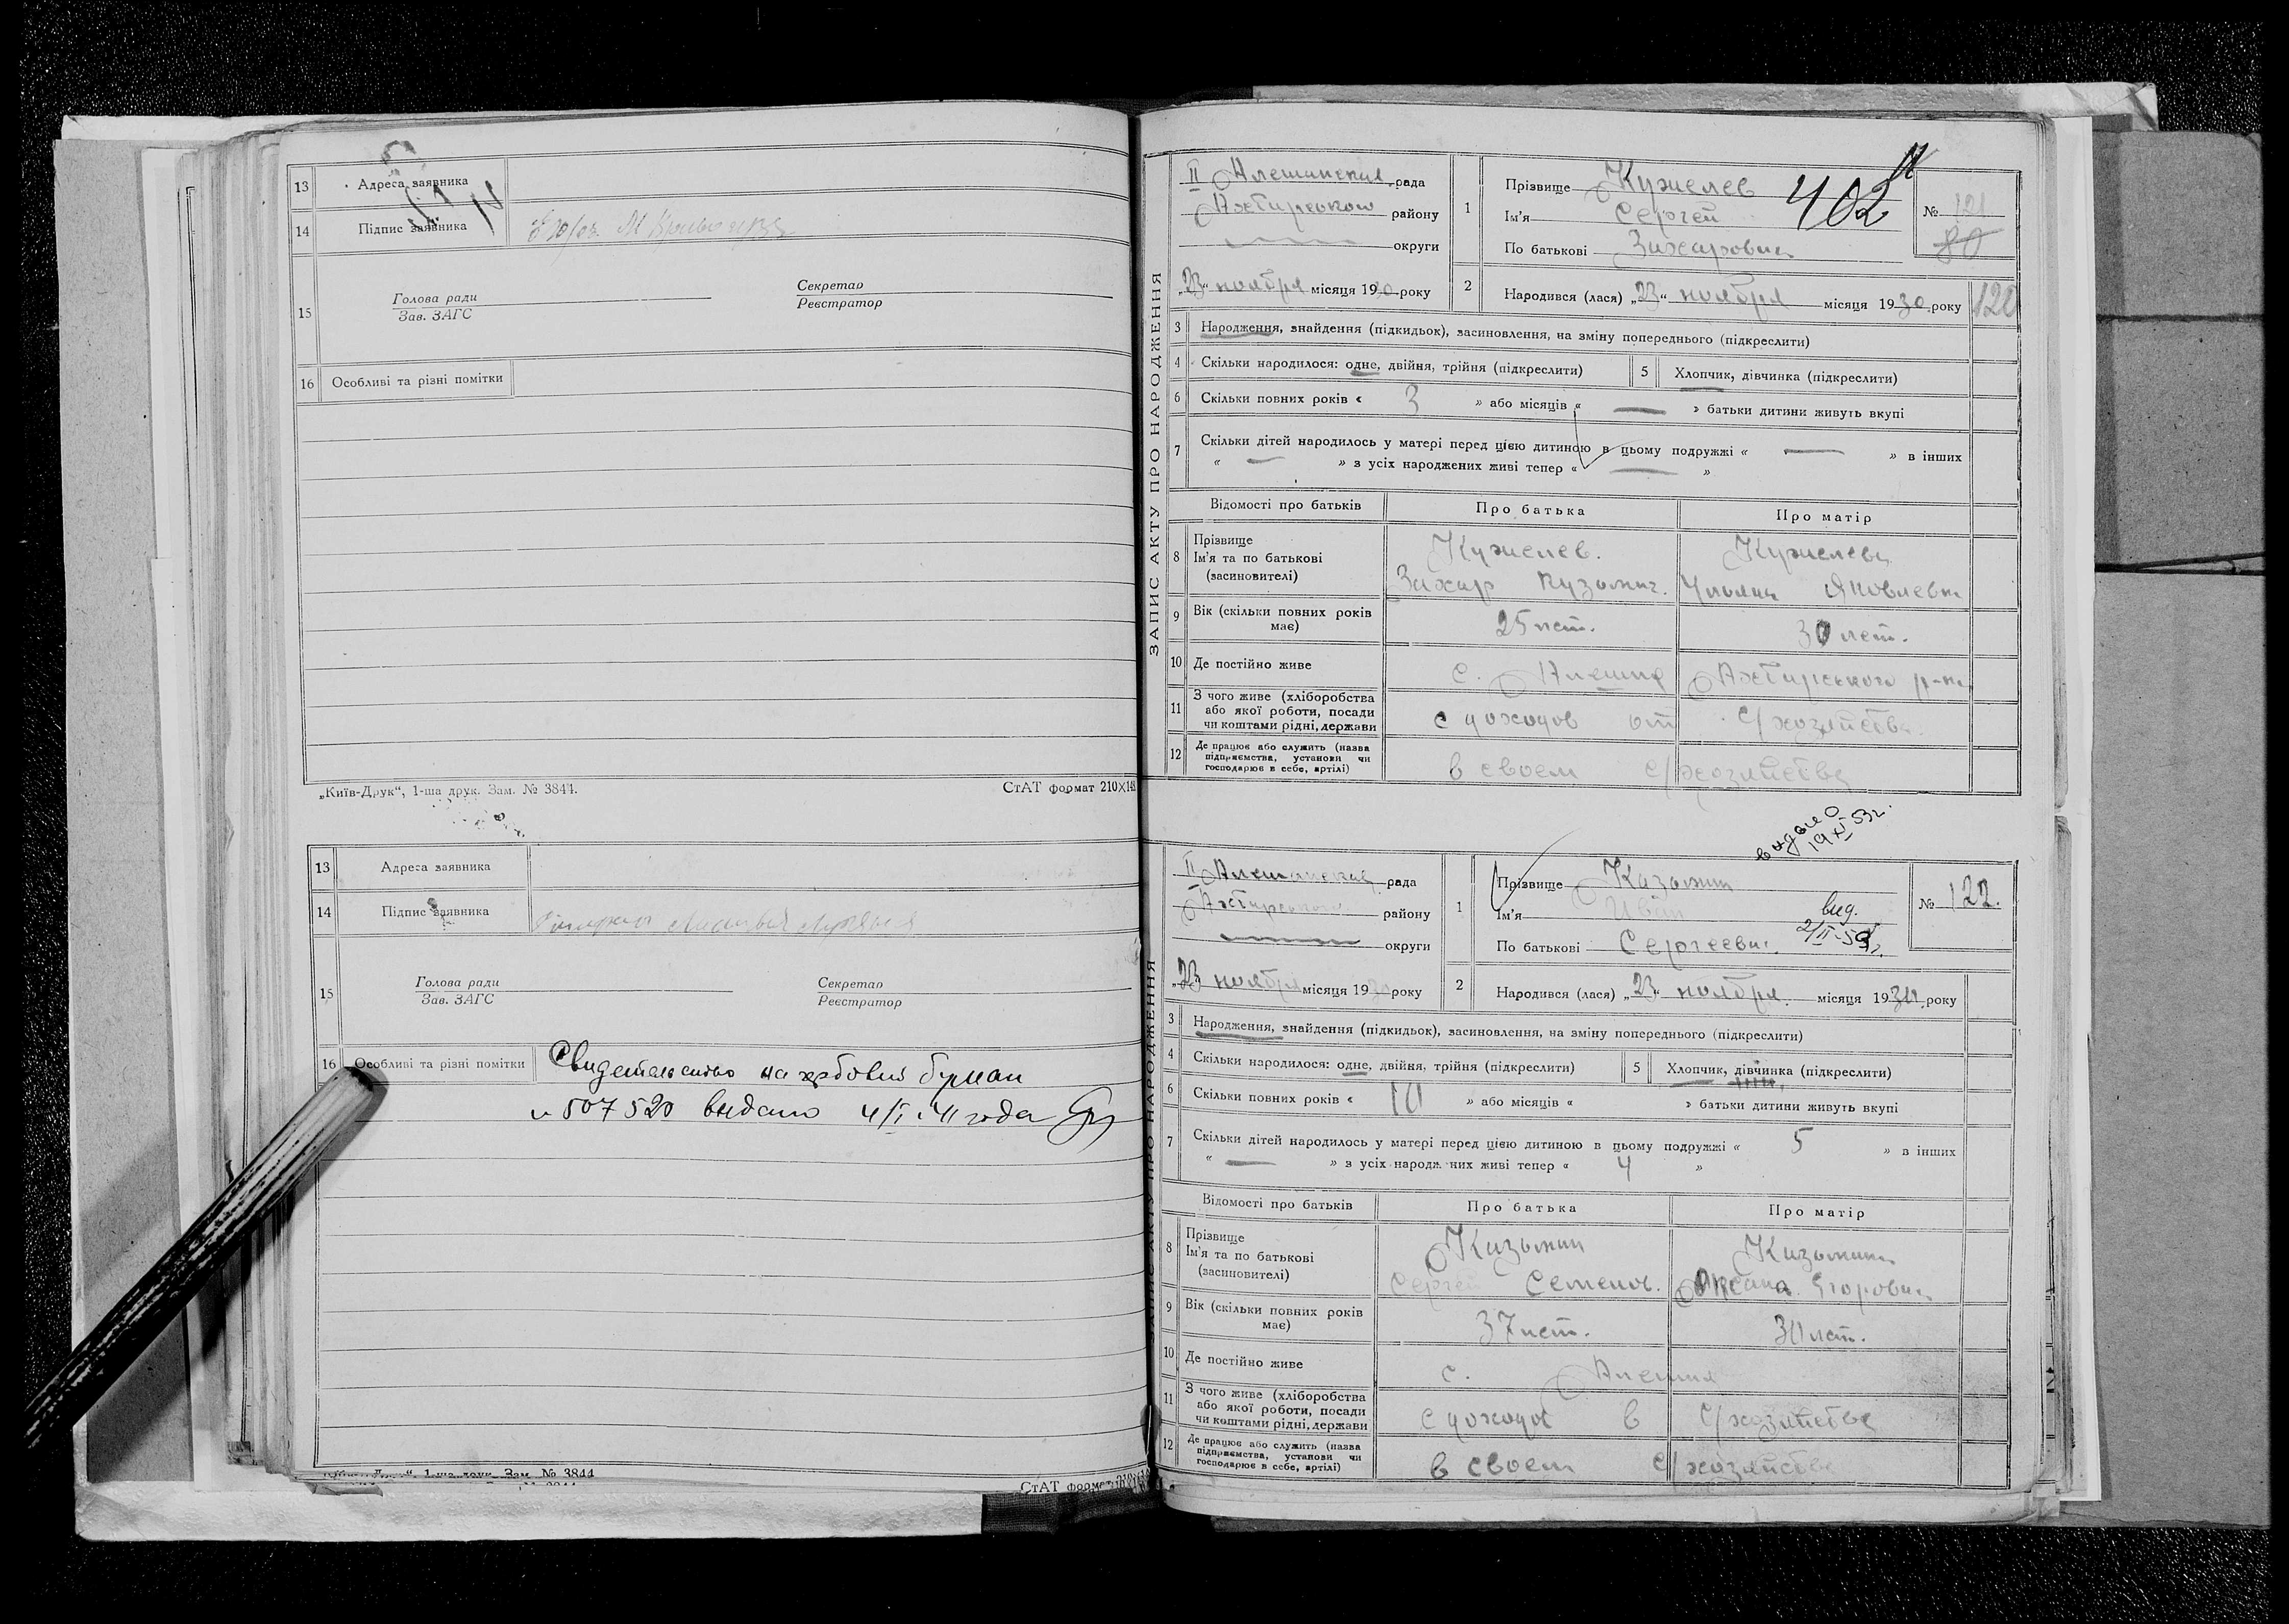 13 Адреса заявника
14 Підпис заявника
15 Голова ради
Зав. ЗАГС
Секретар
Реєстратор
16 Особливі та різні помітки
„Київ-Друк“, 1-ша друк. Зам. № 3844.
СтАТ формат 210×148
13 Адреса заявника
14 Підпис заявника
15 Голова ради
Зав. ЗАГС
Секретар
Реєстратор
16 Особливі та різні помітки Свидетельство на гербовий бумаги
№ 507520 выдано 4/I-41 года
1-ша друк. Зам. № 3844
СтАТ формат 210×148
ЗАПИС АКТУ ПРО НАРОДЖЕННЯ
II Алешинская рада
Ахтирського району
округи
„23“ ноября місяця 1930 року
1 Прізвище Кужелев
Ім'я Сергей
По батькові Захарович
402
№ 121
80
2 Народився (лася) „23“ ноября місяця 1930 року
122
3 Народження, знайдення (підкидьок), засиновлення, на зміну попереднього (підкреслити)
4 Скільки народилося: одне, двійня, трійня (підкреслити) 5 Хлопчик, дівчинка (підкреслити)
6 Скільки повних років « 3 » або місяців « — » батьки дитини живуть вкупі
7 Скільки дітей народилось у матері перед цією дитиною в цьому подружжі « — » в інших
« — » з усіх народжених живі тепер « — »
Відомості про батьків Про батька Про матір
8 Прізвище Кужелев. Кужелева
Ім'я та по батькові
(засиновителі) Захар Кузьмич. Ульяна Яковлевна
9 Вік (скільки повних років має) 25 лет. 30 лет.
10 Де постійно живе с. Алешня Ахтирського р-на
11 З чого живе (хліборобства
або якої роботи, посади
чи коштами рідні, держави с доходов от с/хозяйства.
12 Де працює або служить (назва
підприємства, установи чи
господарює в себе, артілі) в своем с/хозяйстве
выдано
19 XI 53г.
ЗАПИС АКТУ ПРО НАРОДЖЕННЯ
II Алешинская рада
Ахтирського району
округи
„23“ ноября місяця 1930 року
1 Прізвище Казьмин
Ім'я Иван
По батькові Сергеевич
вид.
№ 122.
2 Народився (лася) „23“ ноября місяця 1930 року
3 Народження, знайдення (підкидьок), засиновлення, на зміну попереднього (підкреслити)
4 Скільки народилося: одне, двійня, трійня (підкреслити) 5 Хлопчик, дівчинка (підкреслити)
6 Скільки повних років « 10 » або місяців « » батьки дитини живуть вкупі
7 Скільки дітей народилось у матері перед цією дитиною в цьому подружжі « 5 » в інших
« — » з усіх народж них живі тепер « 4 »
Відомості про батьків Про батька Про матір
8 Прізвище Казьмин Казьмина
Ім'я та по батькові
(засиновителі) Сергей Семенов. Оксана Егоровна
9 Вік (скільки повних років має) 37 лет. 30 лет.
10 Де постійно живе с. Алешня
11 З чого живе (хліборобства
або якої роботи, посади
чи коштами рідні, держави с доходов в с/хозяйстве
12 Де працює або служить (назва
підприємства, установи чи
господарює в себе, артілі) в своем с/хозяйстве